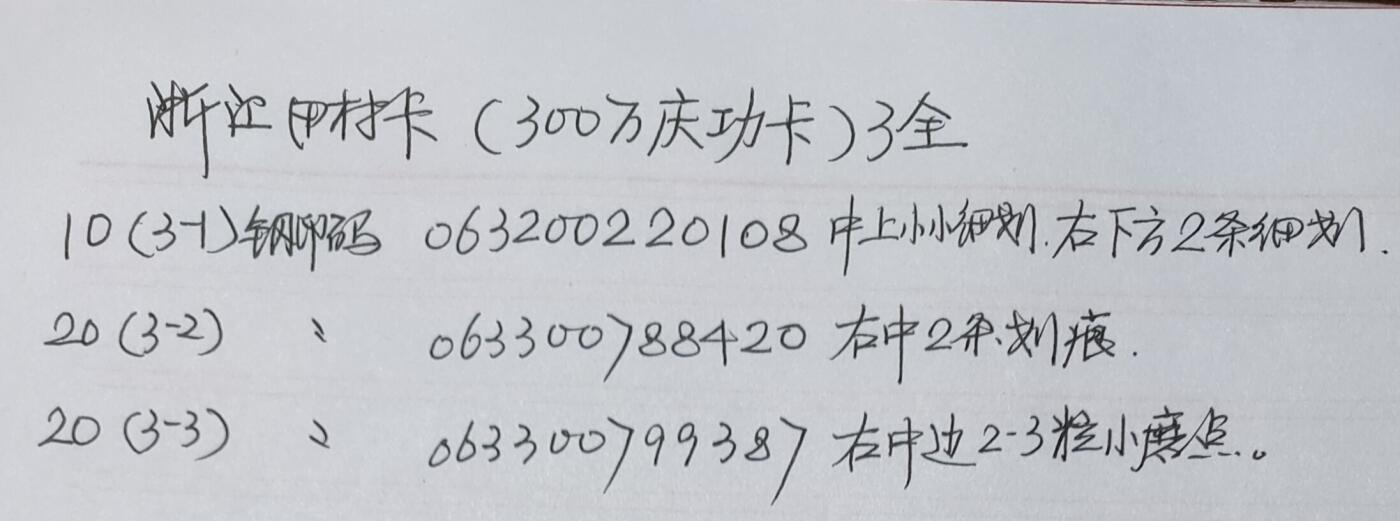 浙江田村卡(300万庆功卡)3全
10(3-1)钢印码 063200220108 中上小小细划.右下方2条细划.
20(3-2) 〃 063300788420 右中2条划痕.
20(3-3) 〃 063300799387 右中边2-3粒小麻点。